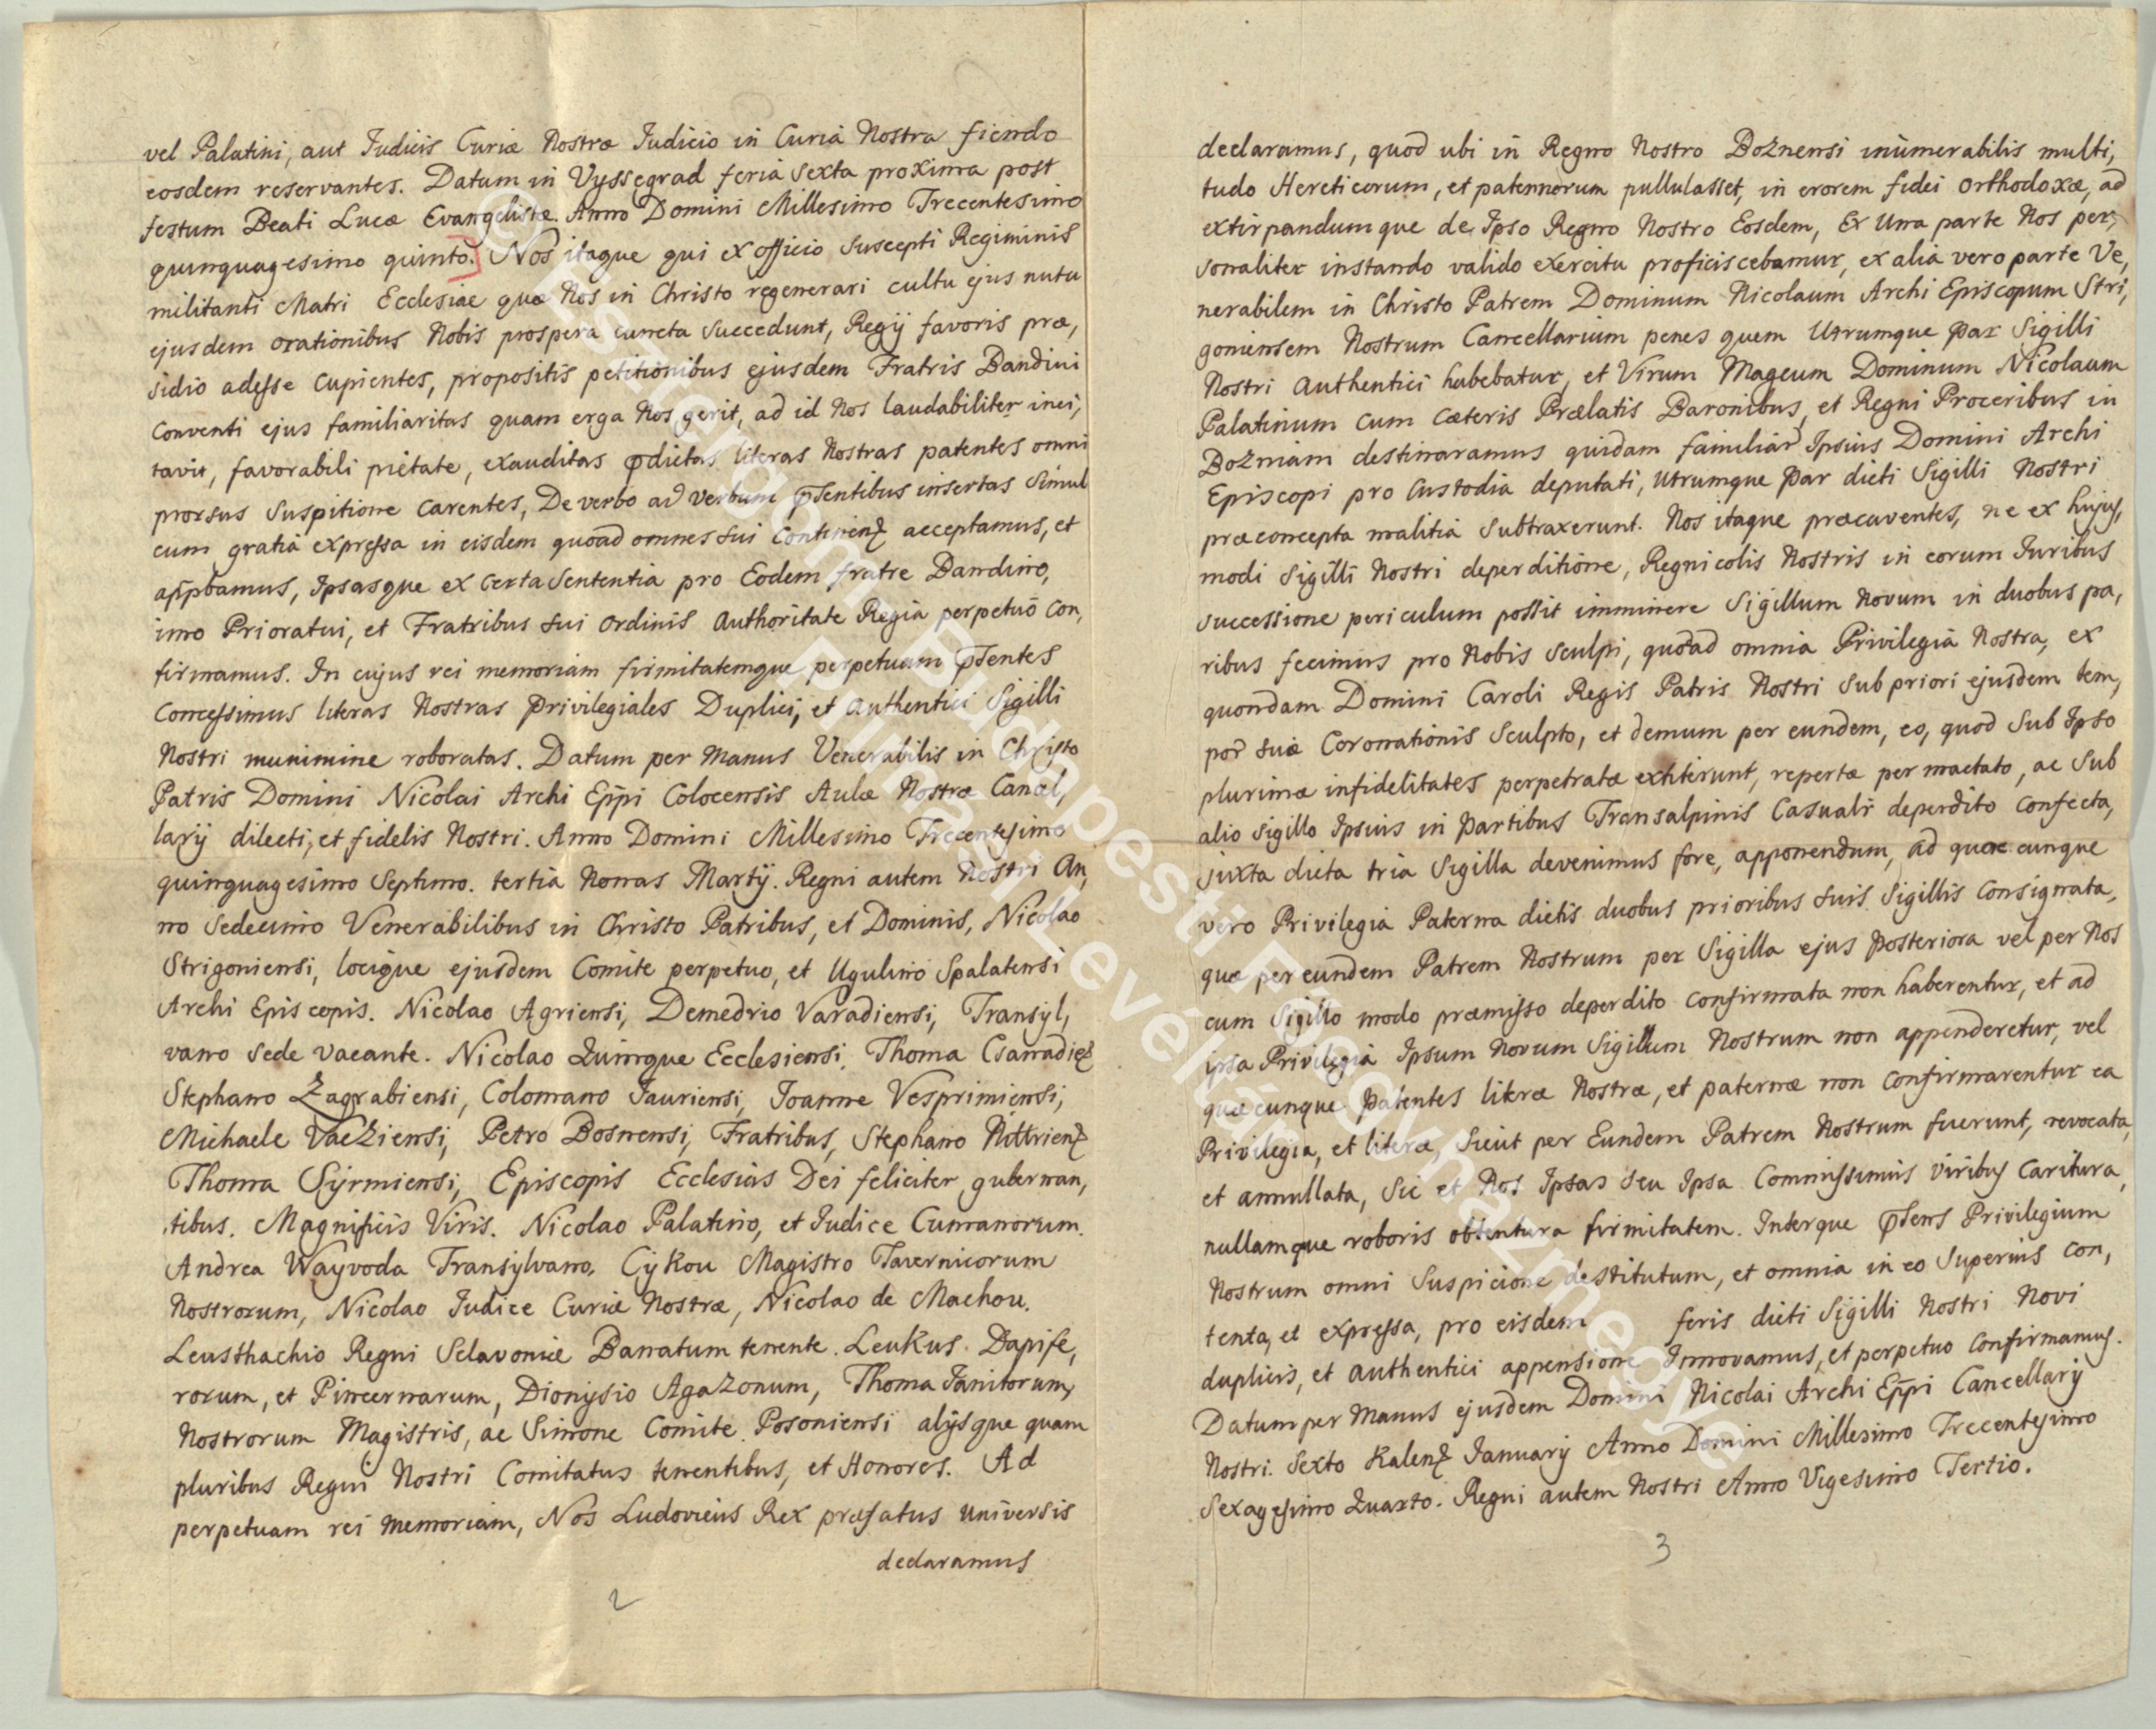 vel Palatini, aut Judicis Curiæ Nostræ Judicio in Curiâ Nostra fiendo
eosdem reservantes. Datum in Vyssegrad feria Sexta proxima post
festum Beati Lucæ Evangelistæ. Anno Domini Millesimo Trecentesimo
quinquagesimo quinto.] Nos itaque qui ex officio suscepti Regiminis
militanti Matri Ecclesiae quæ Nos in Christo regenerari cultu ejus nutu
ejusdem orationibus Nobis prospera cuncta succedunt, Regij favoris præ,
sidio adesse cupientes, propositis petitionibus ejusdem Fratris Bandini
Conventi ejus familiaritas quam erga Nos gerit, ad id Nos laudabiliter inci,
tavit, favorabili pietate, exauditas p̄dictas literas Nostras patentes omni
prorsus suspitione carentes, De verbo ad verbum p̄sentibus insertas Simul
cum gratiâ expressa in eisdem quoad omnes sui continenꝫ acceptamus, et
app̄bamus, Ipsasque ex certa Sententia pro Eodem fratre Bandino,
imo Prioratui, et Fratribus sui ordinis Authoritate Regia perpetuò con,
firmamus. In cujus rei memoriam firmitatemque perpetuam p̄sentes
Concessimus literas Nostras Privilegiales Duplici, et authentici Sigilli
Nostri munimine roboratas. Datum per Manus Venerabilis in Christo
Patris Domini Nicolai Archi Ep̄pi Colocensis Aulæ Nostræ Cancel,
larij dilecti, et fidelis Nostri. Anno Domini Millesimo Trecentesimo
quinquagesimo Septimo. tertiâ Nonas Martij. Regni autem Nostri An,
no Sedecimo Venerabilibus in Christo Patribus, et Dominis, Nicolao
Strigoniensi, locique ejusdem Comite perpetuo, et Ugulino Spalatensi
Archi Episcopis. Nicolao Agriensi, Demedrio Varadiensi, Transyl,
vano sede vacante. Nicolao Quinque Ecclesiensi, Thoma Csanadieꝫ
Stephano Zagrabiensi, Colomano Jauriensi, Joanne Vesprimiensi,
Michaele Vacziensi, Petro Bosnensi, Fratribus, Stephano Nittrienꝫ
Thoma Syrmiensi, Episcopis Ecclesias Dei feliciter gubernan,
tibus. Magnificis Viris. Nicolao Palatino, et Judice Cumanorum.
Andrea Wayvoda Transylvano. Cykou Magistro Tavernicorum
Nostrorum, Nicolao Judice Curiæ Nostræ, Nicolao de Machou.
Leusthachio Regni Sclavoniæ Banatum tenente. Leukus. Dapife,
rorum, et Pincernarum, Dionysio Agazonum, Thoma Janitorum,
Nostrorum Magistris, ac Simone Comite Posoniensi alijsque quam
pluribus Regni Nostri Comitatus tenentibus, et Honores. Ad
perpetuam rei memoriam, Nos Ludovicus Rex præfatus universis
declaramus
2
declaramus, quod ubi in Regno Nostro Boznensi inumerabilis multi,
tudo Hereticorum, et patennorum pullulasset, in erorem fidei orthodoxæ, ad
extirpandumque de Ipso Regno Nostro Eosdem, Ex Una parte Nos per,
sonaliter instando valido exercitu proficiscebamur, ex alia vero parte Ve,
nerabilem in Christo Patrem Dominum Nicolaum Archi Episcopum Stri,
goniensem Nostrum Cancellarium penes quem Utrumque par Sigilli
Nostri authentici habebatur, et Virum Mageum Dominum Nicolaum
Palatinum cum cæteris Prælatis Baronibus, et Regni Proceribus in
Bozniam destinaramus quidam familiar Ipsius Domini Archi
Episcopi pro custodia deputati, utrumque par dicti Sigilli Nostri
præconcepta malitia subtraxerunt. Nos itaque præcaventes, ne ex hujus,
modi Sigilli Nostri deperditione, Regnicolis Nostris in eorum Juribus
successione periculum possit imminere Sigillum Novum in duobus pa,
ribus fecimus pro Nobis sculpi, quòd ad omnia Privilegia Nostra, ex
quondam Domini Caroli Regis Patris Nostri sub priori ejusdem tem,
por suæ Coronationis Sculpto, et demum per eundem, eo, quod sub Ipso
plurimæ infidelitates perpetratæ extiterunt, repertæ per mactato, ac Sub
alio Sigillo Ipsius in partibus Transalpinis casualr deperdito confecta,
juxta dicta tria Sigilla devenimus fore, apponendum, ad quæcunque
vero Privilegia Paterna dictis duobus prioribus suis Sigillis consignata,
quæ per eundem Patrem Nostrum per Sigilla ejus posteriora vel per Nos
cum Sigillo modo præmisso deperdito confirmata non haberentur, et ad
ipsa Privilegia Ipsum Novum Sigillum Nostrum non appenderetur, vel
quæcunque patentes literæ Nostræ, et paternæ non confirmarentur ea
Privilegia, et literæ, sicut per Eundem Patrem Nostrum fuerunt, revocata,
et annullata, Sic et Nos Ipsas seu Ipsa Commissimus viribus caritura,
nullamque roboris obtentura firmitatem. Interque p̄sens Privilegium
Nostrum omni suspicione destitutum, et omnia in eo Superius con,
tenta, et expressa, pro eisdem feris dicti Sigilli Nostri Novi
duplicis, et authentici appensione Innovamus, et perpetuo confirmamus.
Datum per Manus ejusdem Domini Nicolai Archi Ep̄pri Cancellarij
Nostri. Sexto Kalenꝫ Januarij Anno Domini Millesimo Trecentesimo
Sexagesimo Quarto. Regni autem Nostri Anno Vigesimo Tertio.
3
© Esztergom-Budapesti Főegyházmegye
Prímási Levéltár